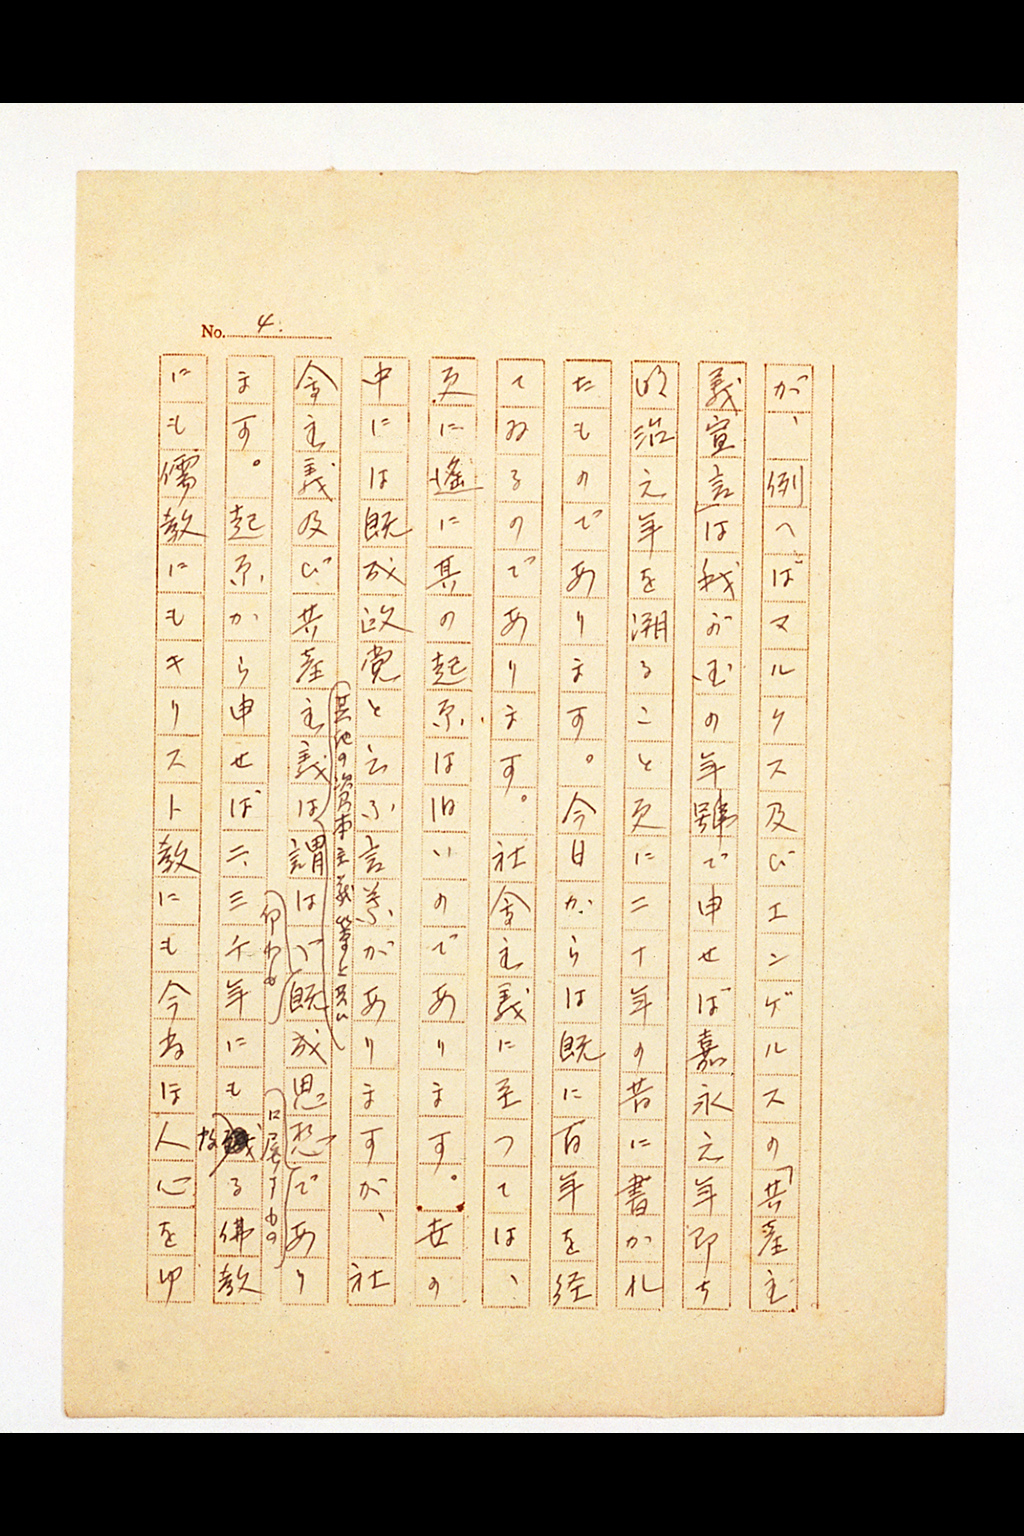 No. 4.
が、例へばマルクス及びエンゲルスの「共産主
義宣言」は我が国の年號で申せば嘉永元年即ち
明治元年を溯ること更に二十年の昔に書かれ
たものであります。今日からは既に百年を経
てゐるのであります。社会主義に至つては、
更に遙に其の起原は旧いのであります。世の
中には既成政党と云ふ言葉がありますが、社
其他の資本主義等と共に
会主義及び共産主義は謂はゞ既成思想であり
ます。起原から申せば二、三千年にも
に属するもの
る佛教
にも儒教にもキリスト教にも今なほ人心を